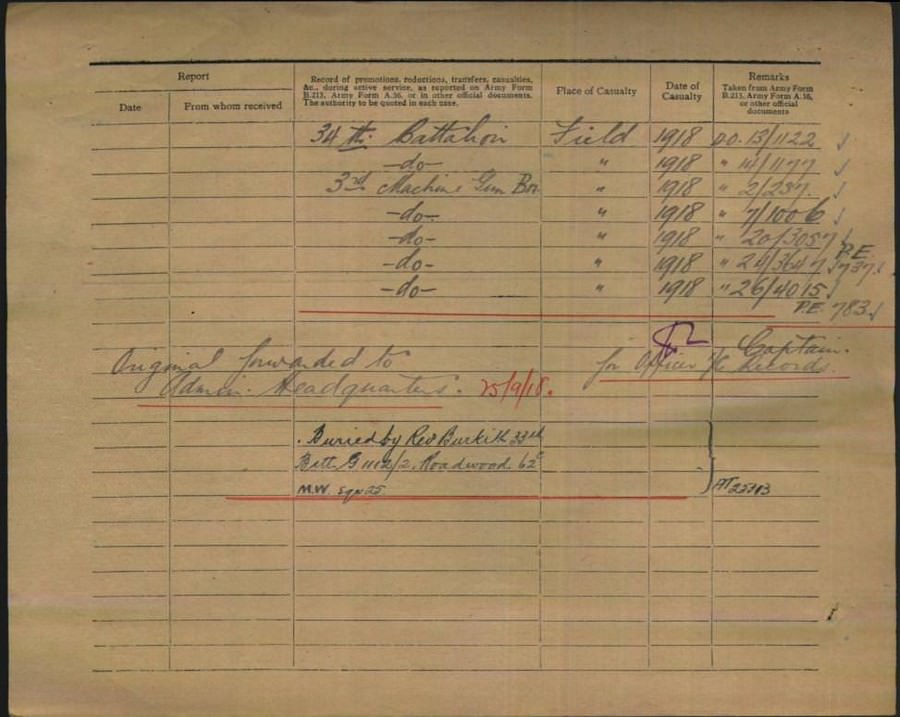 Report
Date
From whom received
Record of promotions, reductions, transfers, casualties,
&c., during active service, as reported on Army Form
B.213, Army Form A.36, or in other official documents.
The authority to be quoted in each case.
Place of Casualty
Date of
Casualty
Remarks
Taken from Army Form
B.213, Army Form A.36,
or other official
documents
34th Battalion Field 1918 DO. 13/1122
-do- " 1918 " 14/1177
3rd Machine Gun Bn. " 1918 " 2/237.
-do- " 1918 " 7/1006
-do- " 1918 " 20/3057
P.E.
-do- " 1918 " 24/3647 737
-do- " 1918 " 26/4015
P.E. 783
Captain.
Original forwarded to for Officer i/c Records.
Admin. Headquarters. 25/9/18.
Buried by Rev Burkitt 33rd
Battn G 11 12/2. Roadwood 62c
M.W. Sqn 25 AT 22313